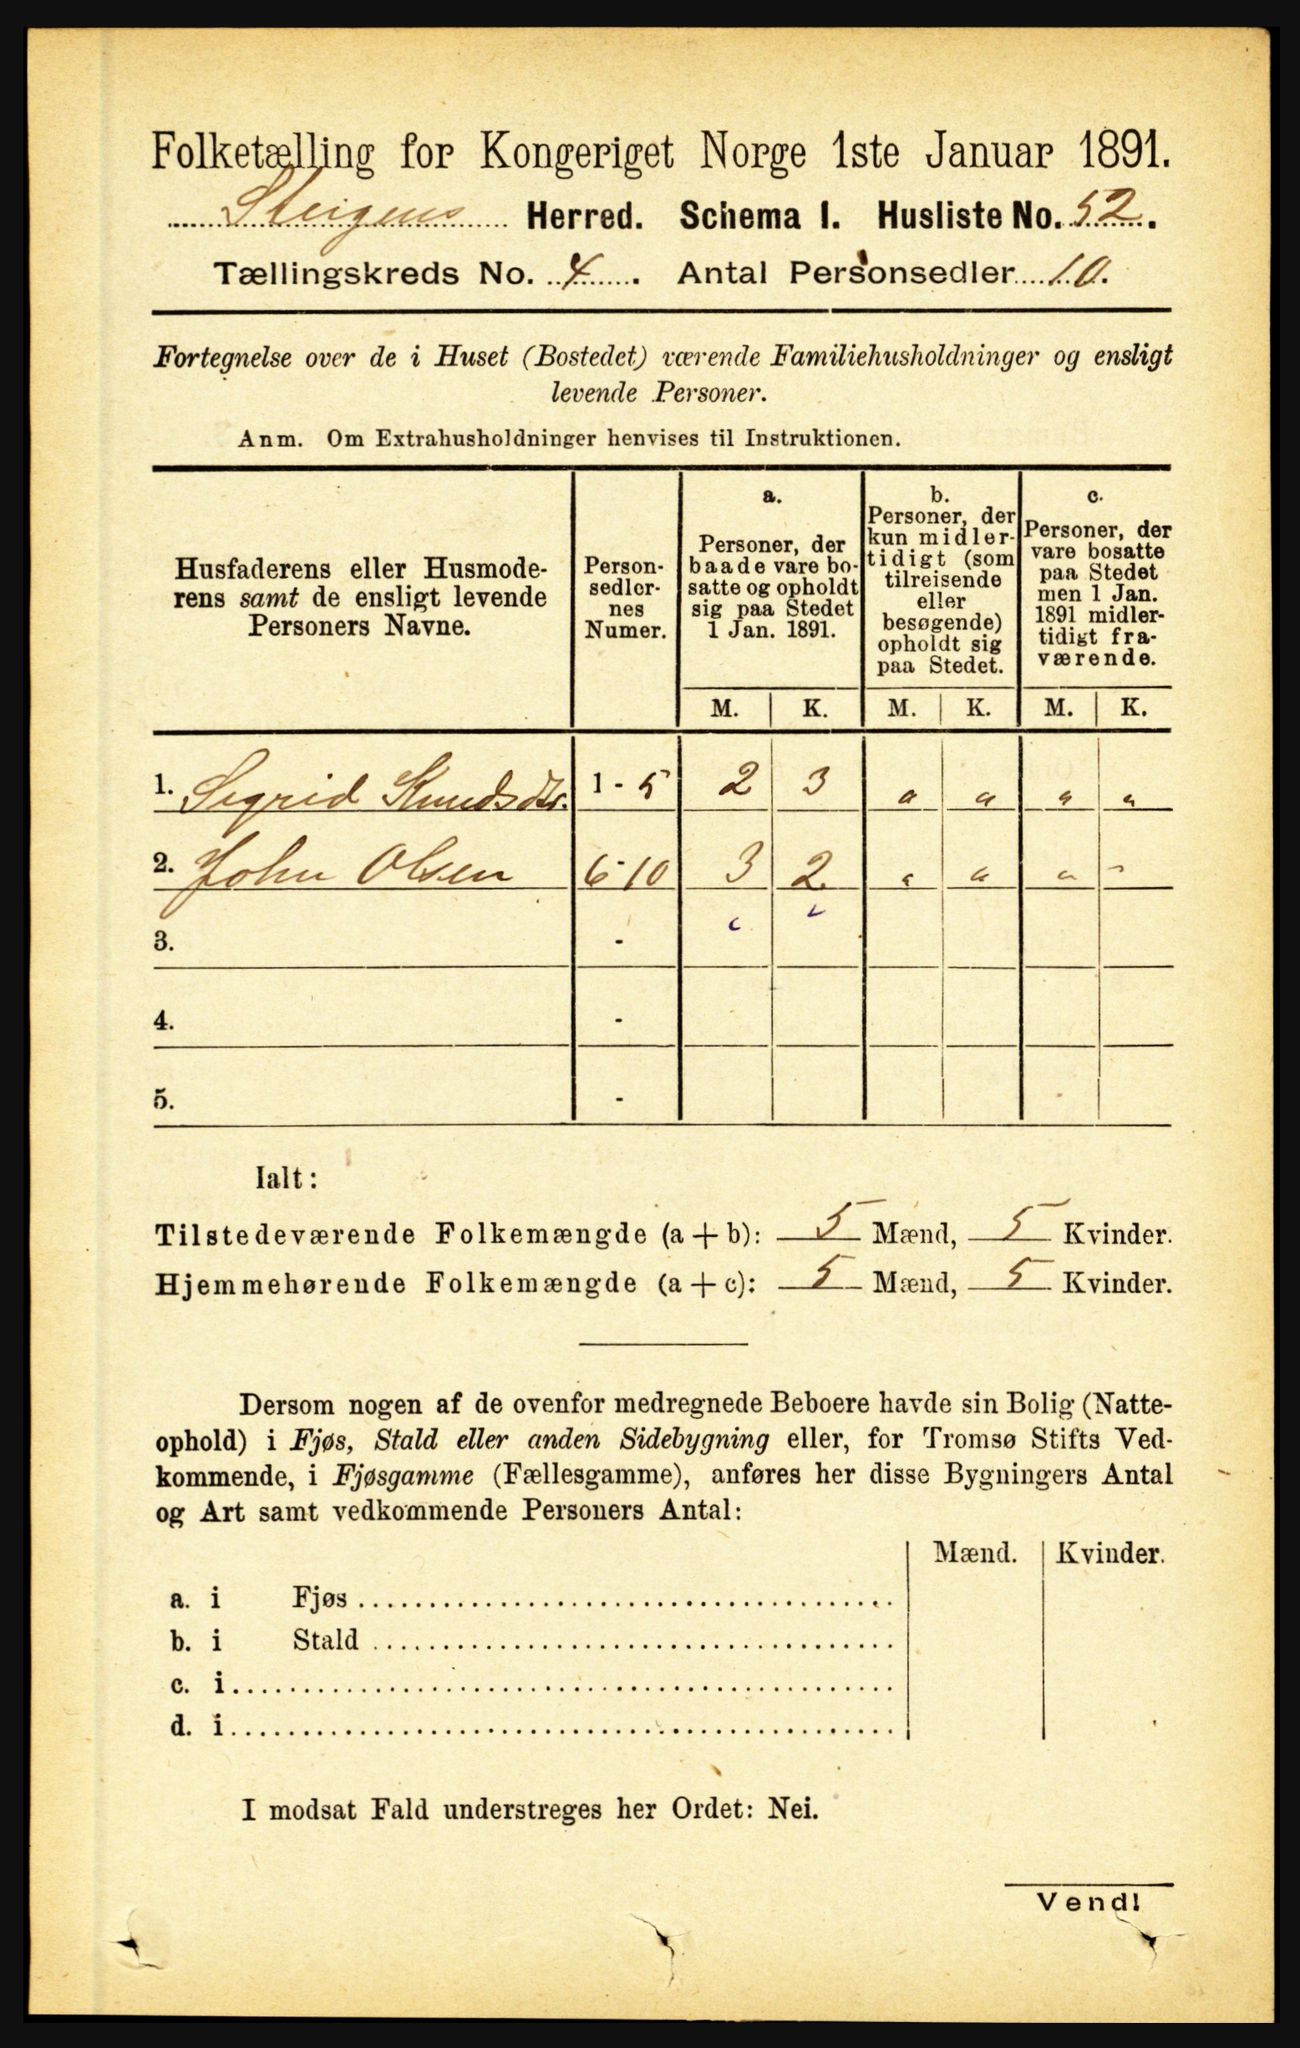 Folketælling for Kongeriget Norge 1ste Januar 1891.
Steigens Herred. Schema I. Husliste No. 52.
Tællingskreds No. 4. Antal Personsedler 10.
Fortegnelse over de i Huset (Bostedet) værende Familiehusholdninger og ensligt
levende Personer.
Anm. Om Extrahusholdninger henvises til Instruktionen.
Husfaderens eller Husmode-
rens samt de ensligt levende
Personers Navne.
Person-
sedler-
nes
Numer.
a.
Personer, der
baade vare bo-
satte og opholdt
sig paa Stedet
1 Jan. 1891.
b.
Personer, der
kun midler-
tidigt (som
tilreisende
eller
besøgende)
opholdt sig
paa Stedet.
c.
Personer, der
vare bosatte
paa Stedet
men 1 Jan.
1891 midler-
tidigt fra-
værende.
M. K. M. K. M. K.
1. Sigrid Knudsdtr. 1 - 5 2 3 " " " "
2. John Olsen 6-10 3 2 " " " "
3. -
4. -
5. -
Ialt:
Tilstedeværende Folkemængde (a + b): 5 Mænd, 5 Kvinder.
Hjemmehørende Folkemængde (a + c): 5 Mænd, 5 Kvinder.
Dersom nogen af de ovenfor medregnede Beboere havde sin Bolig (Natte-
ophold) i Fjøs, Stald eller anden Sidebygning eller, for Tromsø Stifts Ved-
kommende, i Fjøsgamme (Fællesgamme), anføres her disse Bygningers Antal
og Art samt vedkommende Personers Antal:
Mænd. Kvinder.
a. i Fjøs
b. i Stald
c. i
d. i
I modsat Fald understreges her Ordet: Nei.
Vend!